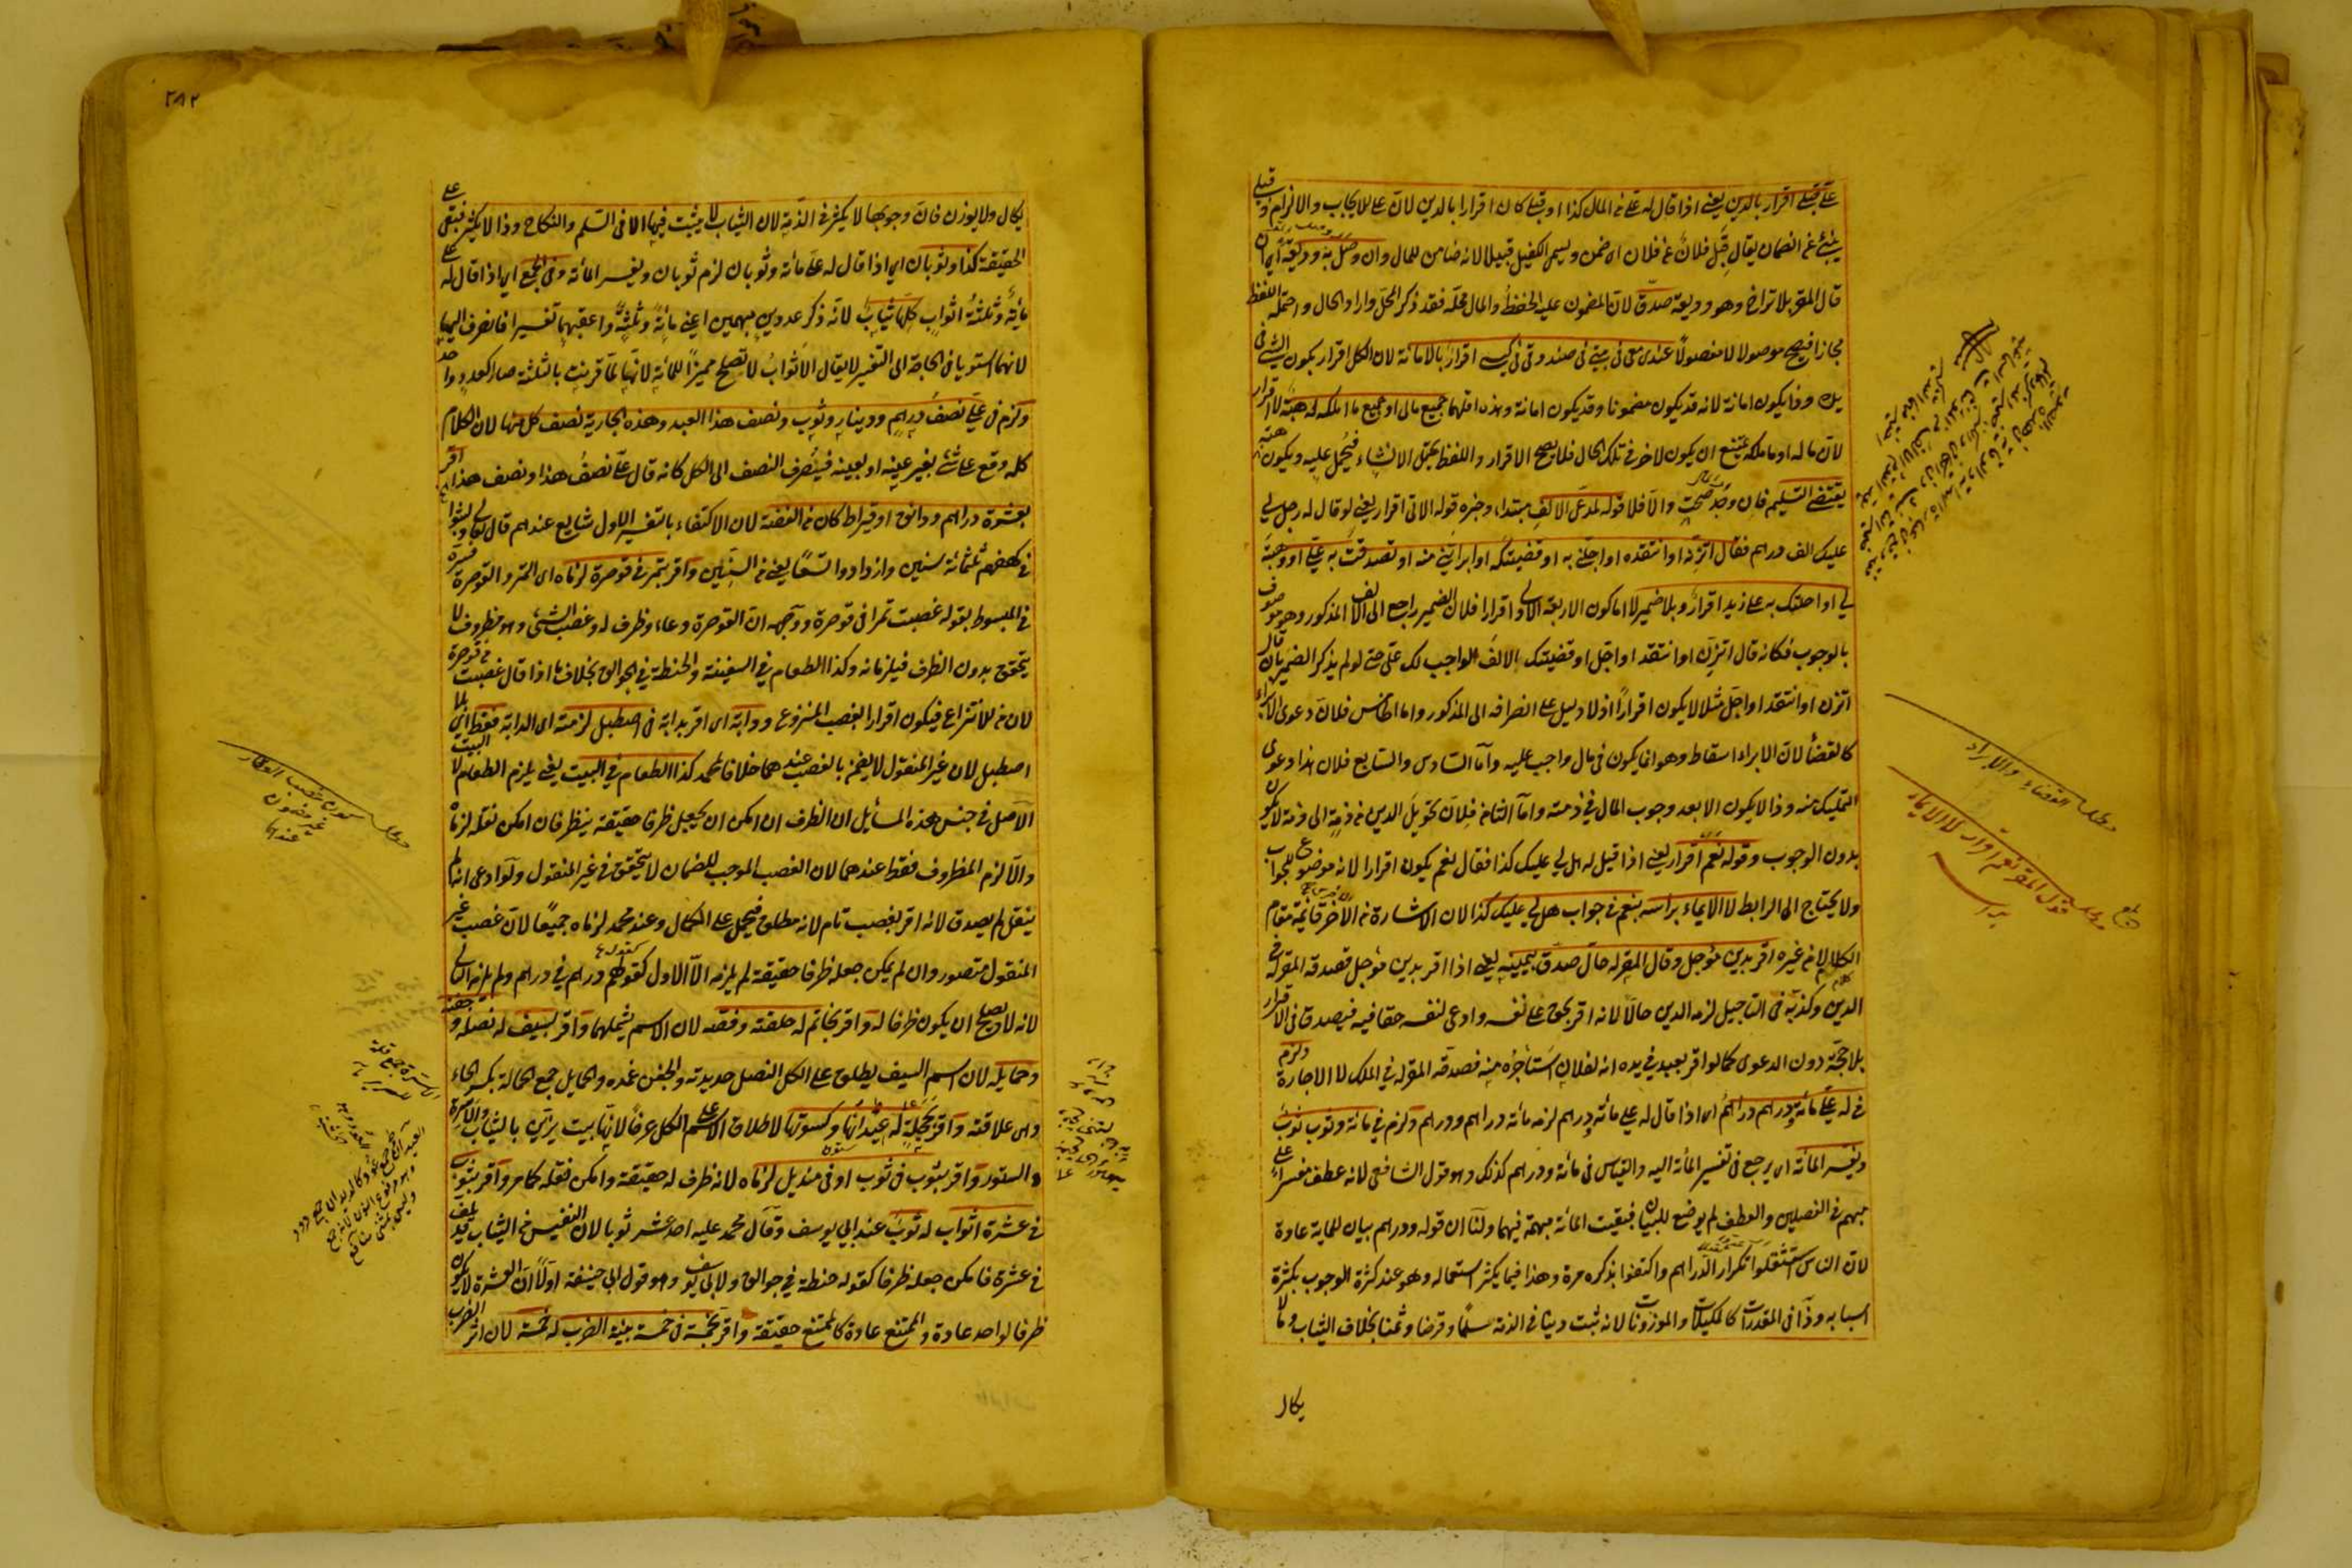 علي وقبلي اقرار بالدين يعني اذا قال له علي من المال كذا او قبلي كان اقرارا بالدين لان علي للايجاب والالزام وقبلي
ينبئ عن الضمان يقال قبل فلان عن فلان اي ضمن ويسمى الكفيل قبيلا لانه ضامن للمال وان وصل به وديعة اي ان
قال المقر بلا تراخ وهو وديعة صدق لان المضمون عليه الحفظ والمال محله فقد ذكر المحل واراد الحال واحتمله اللفظ
مجازا فيصح موصولا لا مفصولا عندي معي في بيتي في صندوقي في كيسي اقرار بالامانة لان الكل اقرار بكون الشئ في
يده وذا يكون امانة لانه قد يكون مضمونا وقد يكون امانة وهذه اقلهما جميع مالي او جميع ما املكه له هبة لا اقرار
لان ماله او ما ملكه يمتنع ان يكون لاخر في تلك الحال فلا يصح الاقرار واللفظ يحتمل الانشاء فيحمل عليه ويكون هبة
يقتضي التسليم فان وجد صحت والا فلا قوله لمدعي الالف مبتدا، وخبره قوله الاتي اقرار يعني لو قال له رجل لي
عليك الف درهم فقال اتزنه او انتقده او اجلني به او قضيتكه او ابراتني منه او تصدقت به علي او وهبته
لي او احلتك به على زيد اقرار وبلا ضمير لا اما كون الاربعة الاولى اقرارا فلان الضمير راجع الى الالف المذكور وهو موصوف
بالوجوب فكانه قال اتزن او انتقد او اجل او قضيتك الالف الواجب لك علي حتى لو لم يذكر الضمير بان قال
اتزن او انتقد او اجل مثلا لا يكون اقرارا اذ لا دليل على انصرافه الى المذكور واما الخامس فلان دعوى الابراء
كالقضا لان الابراء اسقاط وهو انما يكون في مال واجب عليه واما السادس والسابع فلان هذا دعوى
التمليك منه وذا لا يكون الا بعد وجوب المال في ذمته واما الثامن فلان تحويل الدين من ذمة الى ذمة لا يكون
بدون الوجوب وقوله نعم اقرار يعني اذا قيل له هل لي عليك كذا فقال نعم يكون اقرارا لانه موضوع للجواب
ولا يحتاج الى الرابط لا الايماء براسه بنعم في جواب هل لي عليك كذا لان الاشارة من الاخرس قائمة مقام
الكلام لا من غيره اقر بدين مؤجل وقال المقر له حال صدق بيمينه يعني اذا اقر بدين مؤجل فصدقه المقر له في
الدين وكذبه في التاجيل لزمه الدين حالا لانه اقر بحق على نفسه وادعى لنفسه حقا فيه فيصدق في الاقرار
بلا حجة دون الدعوى كما لو اقر بعبد في يده انه لفلان استاجره منه فصدقه المقر له في الملك لا الاجارة ولزم
في له علي مائة ودرهم دراهم اي اذا قال له علي مائة ودرهم لزمه مائة دراهم ودرهم ولزم في مائة وثوب ثوب
ويفسر المائة اي يرجع في تفسير المائة اليه والقياس في مائة ودرهم كذلك وهو قول الشافعي لانه عطف مفسرا على
مبهم في الفصلين والعطف لم يوضع للبيان فبقيت المائة مبهمة فيهما ولنا ان قوله ودرهم بيان للماية عادة
لان الناس استثقلوا تكرار الدراهم واكتفوا بذكره مرة وهذا فيما يكثر استعماله وهو عند كثرة الوجوب بكثرة
اسبابه وذا في المقدرات كالمكيلات والموزونات لانه تثبت دينا في الذمة سلما وقرضا وثمنا بخلاف الثياب وما لا
يكال
مطلب القضاء والابراء
مطلب قول المقر نعم اقرار لا الايماء براسه
٢٨٢
يكال ولا يوزن فان وجوبها لا يكثر في الذمة لان الثياب لا يثبت فيها الا في السلم والنكاح وذا لا يكثر فبقي على
الحقيقة كذا وثوبان اي اذا قال له علي مائة وثوبان لزم ثوبان ويفسر المائة وفي الجمع اي اذا قال له علي
مائة وثلثة اثواب كلها ثياب لانه ذكر عددين مبهمين اعني مائة وثلثة واعقبهما تفسيرا فانصرف اليهما
لانهما استويا في الحاجة الى التفسير لا يقال الاثواب لا تصلح مميزا للمائة لانها لما قرنت بالثلثة صار العدد واحدا
ولزم في علي نصف درهم ودينار وثوب ونصف هذا العبد وهذه الجارية نصف كل منها لان الكلام
كله وقع على شئ بغير عينه او بعينه فينصرف النصف الى الكل كانه قال علي نصف هذا ونصف هذا اقر
بعشرة دراهم ودانق او قيراط كان من الفضة لان الاكتفاء بالتفسير الاول شايع عندهم قال تعالى ولبثوا
في كهفهم ثلثمائة سنين وازدادوا تسعا يعني من السنين واقر بتمر في قوصرة لزماه اي التمر والقوصرة فسره
في المبسوط بقوله غصبت تمرا في قوصرة ووجهه ان القوصرة وعاء وظرف له وغصب الشئ وهو مظروف لا
يتحقق بدون الظرف فيلزمانه وكذا الطعام في السفينة والحنطة في الجوالق بخلاف ما اذا قال غصبت من قوصرة
لان من للانتزاع فيكون اقرارا بغصب المنزوع ودابة اي اقر بدابة في اصطبل لزمته اي الدابة فقط اي بلا
اصطبل لان غير المنقول لا يضمن بالغصب عندهما خلافا لمحمد كذا الطعام في البيت يعني يلزم الطعام لا البيت
الاصل في جنس هذه المسائل ان الظرف ان امكن ان يجعل ظرفا حقيقة ينظر فان امكن نقله لزماه
والا لزم المظروف فقط عندهما لان الغصب الموجب للضمان لا يتحقق في غير المنقول ولو ادعى انه لم
ينقل لم يصدق لانه اقر بغصب تام لانه مطلق فيحمل على الكمال وعند محمد لزماه جميعا لان غصب غير
المنقول متصور وان لم يمكن جعله ظرفا حقيقة لم يلزمه الا الاول كقولهم درهم في درهم ولم يلزمه الثاني
لانه لا يصلح ان يكون ظرفا له واقر بخاتم له حلقته وفصه لان الاسم يشملهما واقر بسيف له نصله وجفنه
وحمايله لان اسم السيف يطلق على الكل النصل حديدته والجفن غمده والحمايل جمع الحمالة بكسر الحاء
وهي علاقته واقر بحجلة له عيدانها وكسوتها لاطلاق الاسم على الكل عرفا لانها بيت يزين بالثياب والاسرة
والستور واقر بثوب في ثوب او في منديل لزماه لانه ظرف له حقيقة وامكن نقله كما مر واقر بثوب
في عشرة اثواب له ثوب عند ابي يوسف وقال محمد عليه احد عشر ثوبا لان النفيس من الثياب قد يلف
في عشرة فامكن جعله ظرفا كقوله حنطة في جوالق ولابي يوسف وهو قول ابي حنيفة اولا ان العشرة لا يكون
ظرفا لواحد عادة والممتنع عادة كالممتنع حقيقة واقر بخمسة في خمسة بنية الضرب له خمسة لان اثر الضرب
مطلب كون غصب العقار غير مضمون عندهما